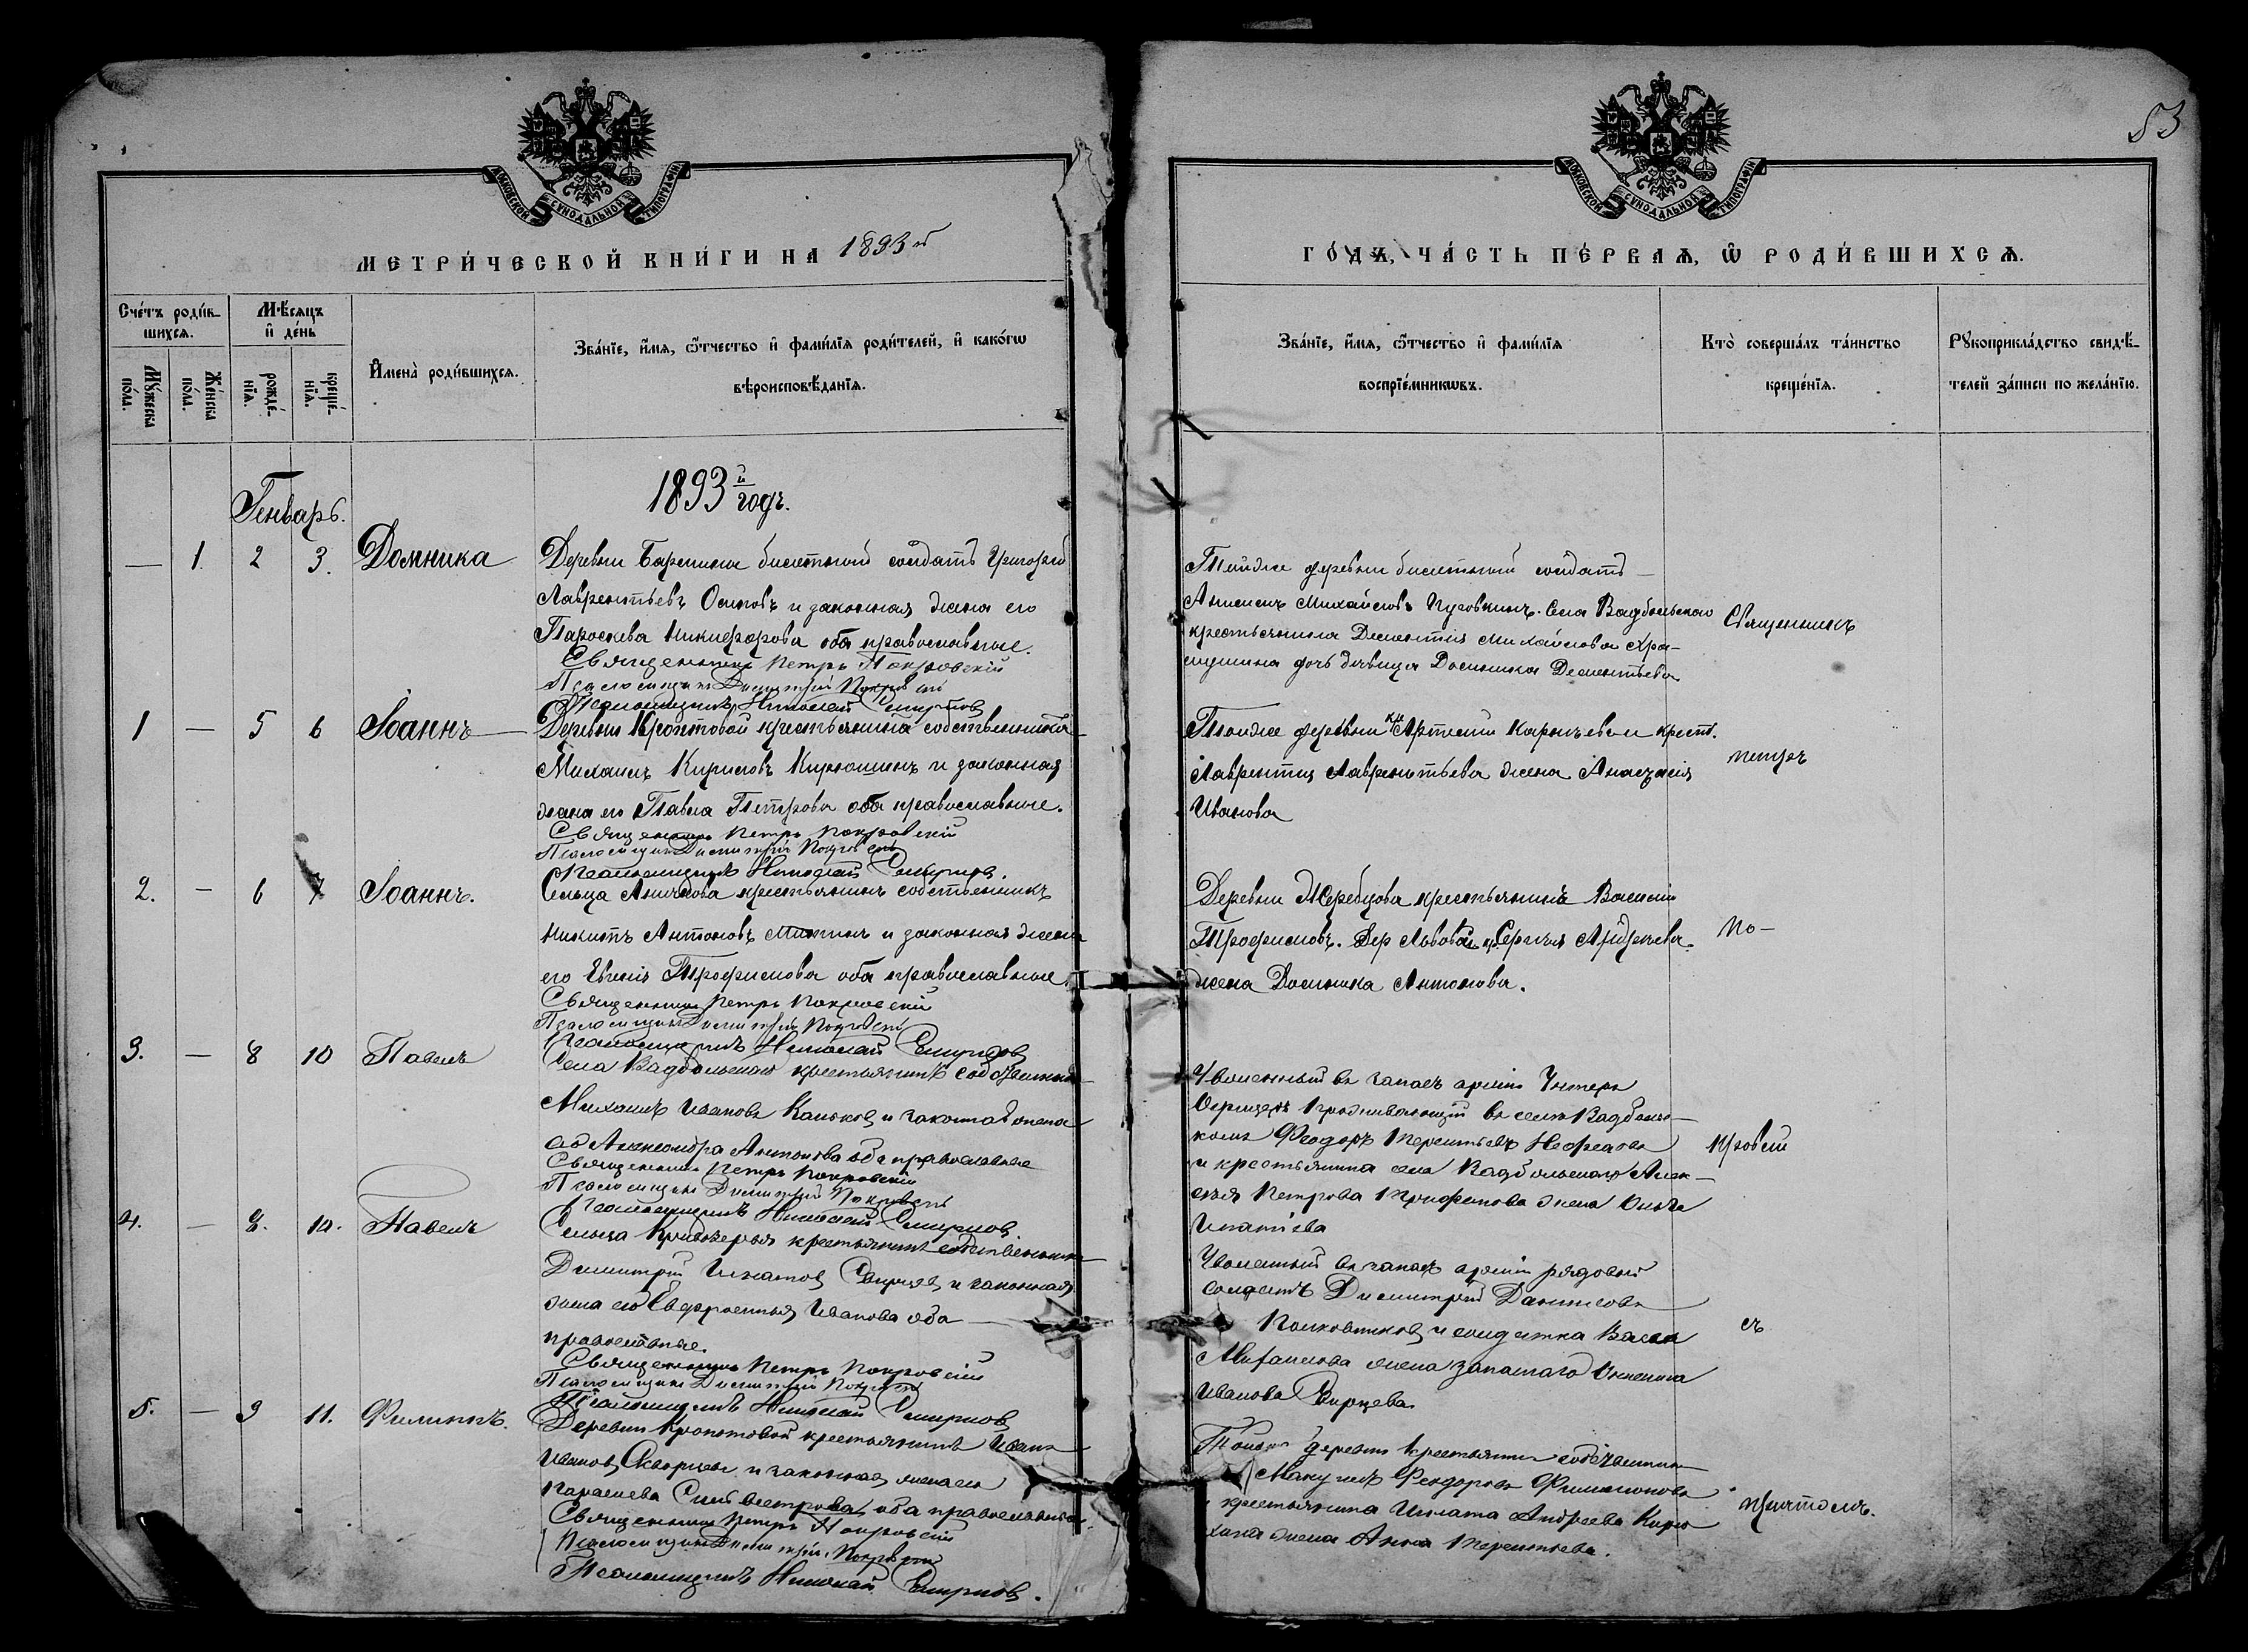 53
МОСКОВСКОЙ СѴНОДАЛЬНОЙ ТИПОГРАФІИ
МОСКОВСКОЙ СѴНОДАЛЬНОЙ ТИПОГРАФІИ
МЕТРИ́ЧЕСКОЙ КНИ́ГИ НА 1893й
ГО́ДЪ, ЧА́СТЬ ПЕ́РВАѦ, Ѿ РОДИ́ВШИХСѦ.
Сче́тъ роди́вшихсѧ.
Мѣ́сѧцъ и҆ де́нь
Мꙋ́жеска по́ла.
Же́нска по́ла.
рожде́нїѧ.
креще́нїѧ.
И҆мена̀ роди́вшихсѧ.
Зва́нїе, и҆́мѧ, ѻ҆́тчество и҆ фами́лїѧ роди́телей, и҆ како́гѡ
вѣроисповѣ́данїѧ.
Зва́нїе, и҆́мѧ, ѻ҆́тчество и҆ фами́лїѧ
воспрїе́мникѡвъ.
Кто̀ соверша́лъ та́инство
креще́нїѧ.
Рꙋкоприкла́дство свидѣ́-
телей за́писи по жела́нїю.
1893й годъ.
Генварь.
— 1 2 3. Домника
Деревни билетный солдатъ Григорій
Лаврентьевъ Осиповъ и законная жена его
Параскева Никифорова оба православные.
Священникъ Петръ Покровскій
Псаломщикъ Димитрій Покровскій
Псаломщикъ Николай Смирновъ
Тойже деревни билетный солдатъ
Михайловъ Пуговкинъ. Села Вадбольскаго
крестьянина Дементія Михайлова Хра-
пушина дочь дѣвица Домника Дементьева
Священникъ
1 — 5 6 Іоаннъ
Деревни Кропотовой крестьянинъ собственникъ
Михаилъ Кириловъ Кирюшинъ и законная
жена его Павла Петрова оба православные.
Священникъ Петръ Покровскій
Псаломщикъ Димитрій Покровскій
Псаломщикъ Николай Смирновъ.
Тойже деревни кр Артемій и крест.
Лаврентія Лаврентьева жена Анастасія
Иванова
Петръ
2. — 6 7 Іоаннъ.
Сельца крестьянинъ собственникъ
Никита Антоновъ и законная жена
его Евгенія Трофимова оба православные
Священникъ Петръ Покровскій
Псаломщикъ Димитрій Покровскій
Псаломщикъ Николай Смирновъ
Деревни Жеребцова крестьянинъ Василій
Трофимовъ. Дер Львова Сергія
жена Домника Антонова.
По-
3. — 8 10 Павелъ
Села Вадбольскаго крестьянинъ собственникъ
Михаилъ Ивановъ и законная жена
его Александра Антонова оба православные
Священникъ Петръ Покровскій
Псаломщикъ Димитрій Покровскій
Псаломщикъ Николай Смирновъ
Уволенный въ запасъ арміи Унтеръ
Офицеръ проживающій въ селѣ Вадболь-
комъ Феодоръ Терентьевъ
и крестьянина села Вадбольскаго Алек-
сѣя Петрова жена Ольга
Игнатьева
кровскій
4. — 8. 10. Павелъ
Сельца крестьянинъ собственникъ
Димитрій Игнатовъ и законная
жена его Евфросинья Иванова оба
православные.
Священникъ Петръ Покровскій
Псаломщикъ Димитрій Покровскій
Псаломщикъ Николай Смирновъ
Уволенный въ запасъ арміи рядовый
солдатъ Димитрій Даниловъ
Полковниковъ и солдатка
Михаилова жена запаснаго
Иванова
съ
5. — 9 11. Филиппъ.
Деревни Кропотовой крестьянинъ Иванъ
Ивановъ Скворцовъ и законная жена его
Параскева Сильвестрова оба православные
Священникъ Петръ Покровскій
Псаломщикъ Димитрій Покровскій
Псаломщикъ Николай Смирновъ.
Тойже деревни крестьянинъ собственникъ
Феодоровъ Филимоновъ
крестьянина Игната Андреева
жена Анна Терентьева.
причтомъ.